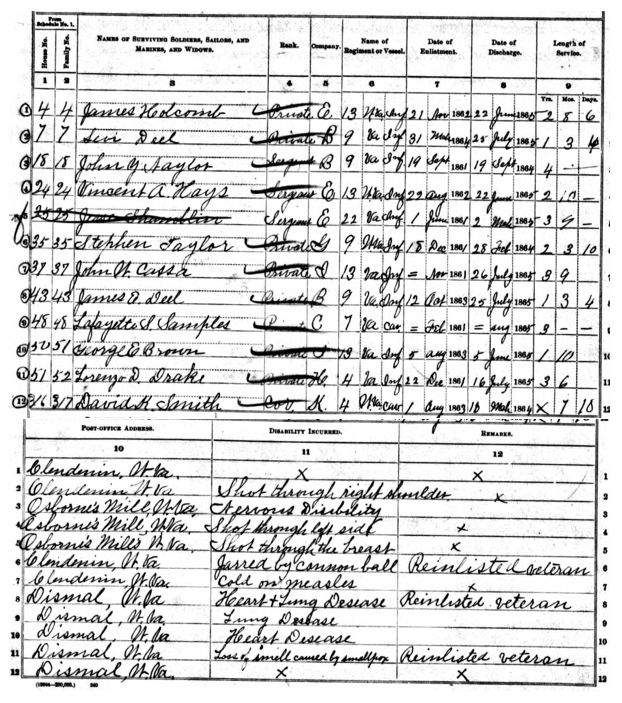 From Schedule No. 1.
House No. Family No. NAMES OF SURVIVING SOLDIERS, SAILORS, AND MARINES, AND WIDOWS. Rank. Company. Name of Regiment or Vessel. Date of Enlistment. Date of Discharge. Length of Service.
1 2 3 4 5 6 7 8 9
Yrs. Mos. Days.
1 4 4 James Holcomb Private E. 13 W.Va Inf 21 Nov 1862 22 June 1865 2 8 6
2 7 7 Levi Deel Private B 9 Va Inf 31 Mch 1864 25 July 1865 1 3 4
3 18 18 John Y. Naylor Sergeant B 9 Va Inf 19 Sept 1861 19 Sept 1864 4 —
4 24 24 Vincent A. Hays Sergeant E 13 W.Va Inf 22 Aug 1862 22 June 1865 2 10 —
25 25 Jesse Shamblin Sergeant E 22 Va 1 June 1861 2 1865 3 9 —
6 35 35 Stephen Taylor Private G 9 W.Va Inf 18 Dec 1861 28 Feb 1864 2 3 10
7 37 37 John W. Cassa Private I 13 Va Inf = Nov 1861 26 July 1865 3 9
8 43 43 James A. Deel Private B 9 Va. Inf 12 Oct 1863 25 July 1865 1 3 4
9 48 48 Lafayette S. Samples C 7 Va cav = Feb 1861 = Aug 1865 3 — —
10 50 51 George E Brown Private 13 Va Inf 5 Aug 1863 5 June 1865 1 10
11 51 52 Lorenzo D. Drake Private H. 4 Va Inf 22 Dec 1861 16 July 1865 3 6
12 316 317 David K. Smith Cor K. 4 W.Va cav 1 Aug 1863 10 Mch 1864 x 7 10
POST-OFFICE ADDRESS. DISABILITY INCURRED. REMARKS.
10 11 12
1 Clendenin, W.Va. x x 1
2 Clendenin W.Va Shot through right shoulder x 2
3 Osborne's Mill, W.Va Nervous Disibility 3
4 Osborne's Mill, W.Va. Shot through left side x 4
5 Osborne's Mills W.Va. Shot through the breast x 5
6 Clendenin, W.Va. Jarred by connon ball Reinlisted veteran 6
7 Clendenin, W.Va. Cold on measles x 7
8 Dismal, W.Va Heart + Lung Desease Reinlisted veteran 8
9 Dismal, W.Va Lung Desease 9
10 Dismal, W.Va Heart Desease 10
11 Dismal, W.Va Loss of smell caused by smallpox Reinlisted veteran 11
12 Dismal, W.Va x x 12